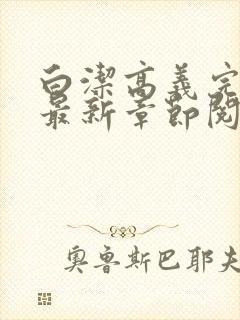 白潔高義完
最新章節閱
奧魯斯巴耶夫